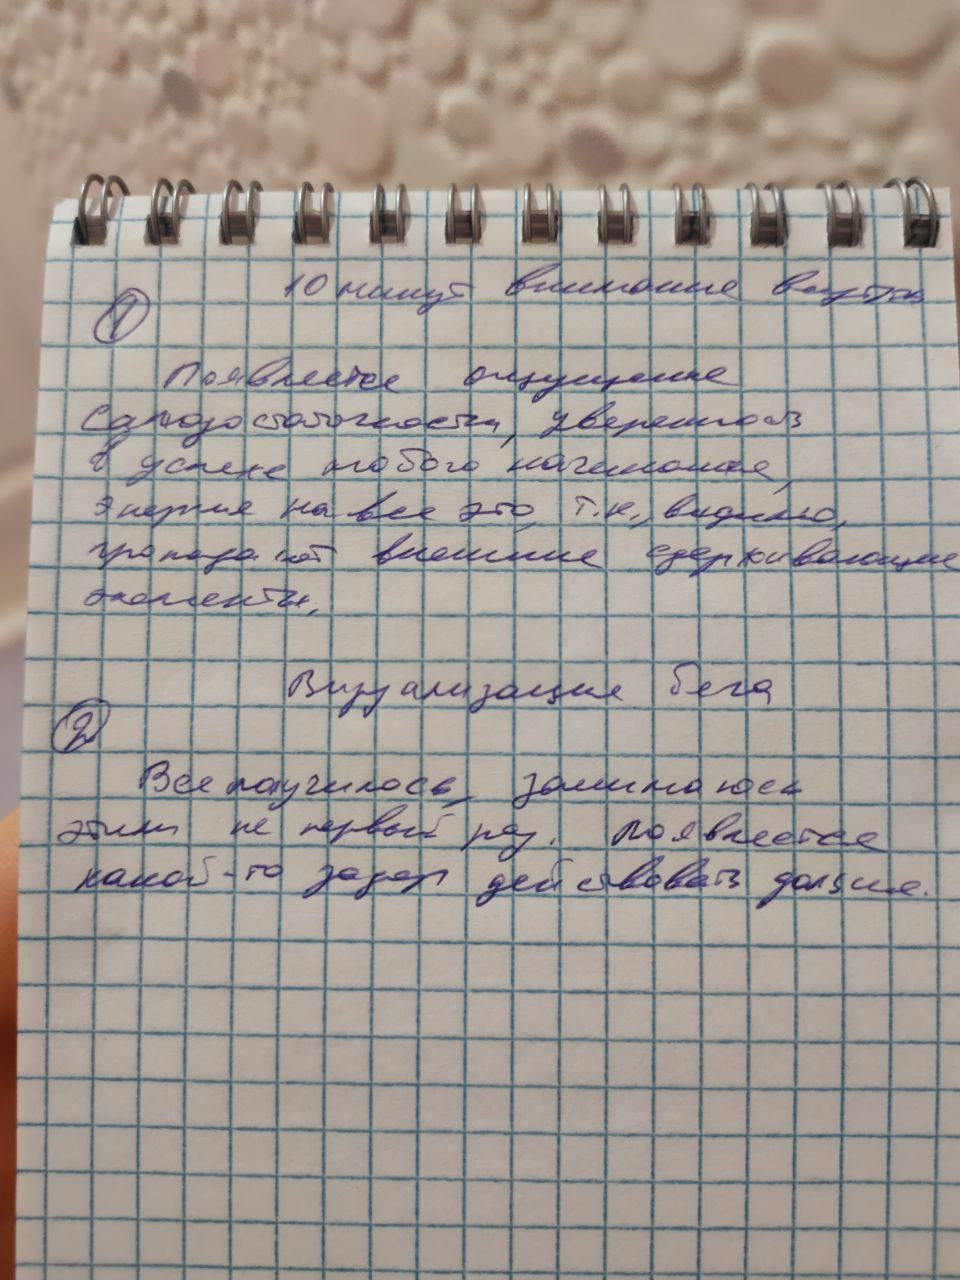 10 минут внимание внутрь
1
Появляется ощущение
самодостаточности, уверенность
в успехе любого начинания,
энергия на все это, т.к., видимо,
пропадают внешние сдерживающие
элементы.
Визуализация бега
2
Все получилось, занимаюсь
этим не первый раз. Появляется
какой-то задор действовать дальше.